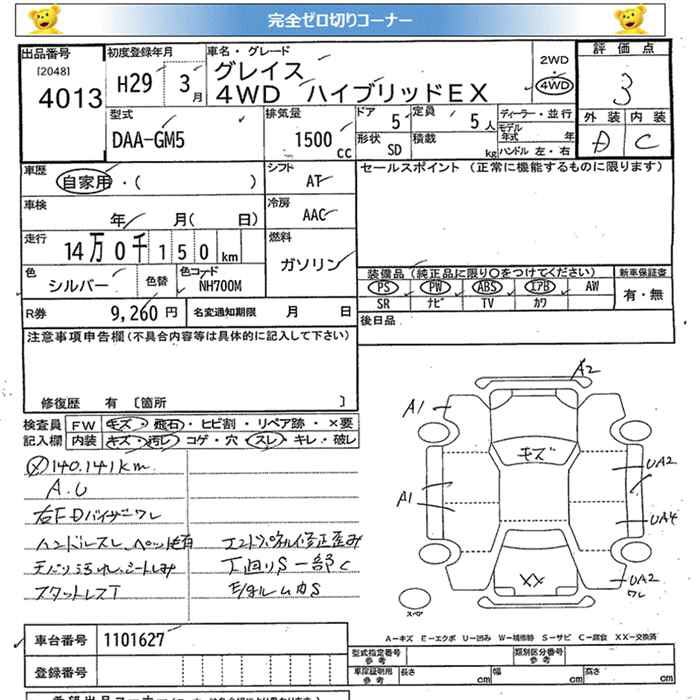 完全ゼロ切りコーナー
出品番号 初度登録年月 車名・グレード 2WD 評価点
[2048] H29 3月 グレイス ・ 3
4013 4WD ハイブリッドEX 4WD
型式 排気量 ドア 定員 ディーラー・並行 外装 内装
DAA-GM5 1500 cc 5 5人 モデル年式 年 D C
形状 SD 積載 kg ハンドル 左・右
車歴 シフト セールスポイント (正常に機能するものに限ります)
自家用・( ) AT
車検 冷房
年 月( 日) AAC
走行 燃料
14万0千150km ガソリン
色 色替 色コード 装備品 (純正品に限り○をつけてください) 新車保証書
シルバー NH700M PS PW ABS エアB AW 有・無
SR ナビ TV カワ
R券 9,260円 名変通知期限 月 日 後日品
注意事項申告欄 (不具合内容等は具体的に記入して下さい)
修復歴 有 〔箇所 〕
検査員 FW キズ・飛石・ヒビ割・リペア跡・×要
記入欄 内装 キズ・汚レ・コゲ・穴・スレ・キレ・破レ
140.141km
A.U
右FDバイザーワレ
ハンドルスレ、ペット毛有 エンドパネル修正歪み
天バリ汚れ、シートしみ 下回りS一部C
スタットレスT
A2
A1
キズ
UA2
A1
UA4
XX
UA2
ワレ
スペア
A−キズ E−エクボ U−凹み W−補修跡 S−サビ C−腐食 XX−交換済
車台番号 1101627
型式指定番号 参考 類別区分番号 参考
登録番号 車庫証明資料 参考 長さ cm 幅 cm 高さ cm